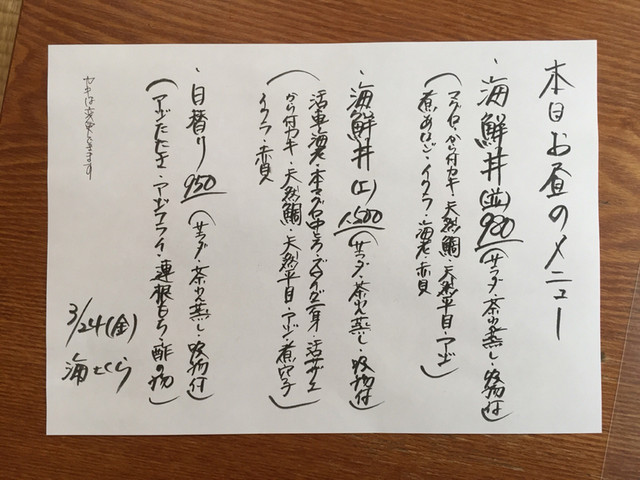 本日お昼のメニュー
・海鮮丼(並)980(サラダ・茶わん蒸し・吸物付)
(マグロ・から付カキ・天然鯛・天然平目・アジ・
煮あなご・イクラ・海老・赤貝)
・海鮮丼(上)1,500(サラダ・茶わん蒸し・吸物付)
活車海老・本マグロ中とろ・ズワイガニ身・活サザエ
から付カキ・天然鯛・天然平目・アジ・煮穴子
イクラ・赤貝
・日替り950(サラダ・茶わん蒸し・吸物付)
(アジたたき・アジフライ・蓮根もち・酢の物)
カキは変更できます
3/24(金)
海とくら